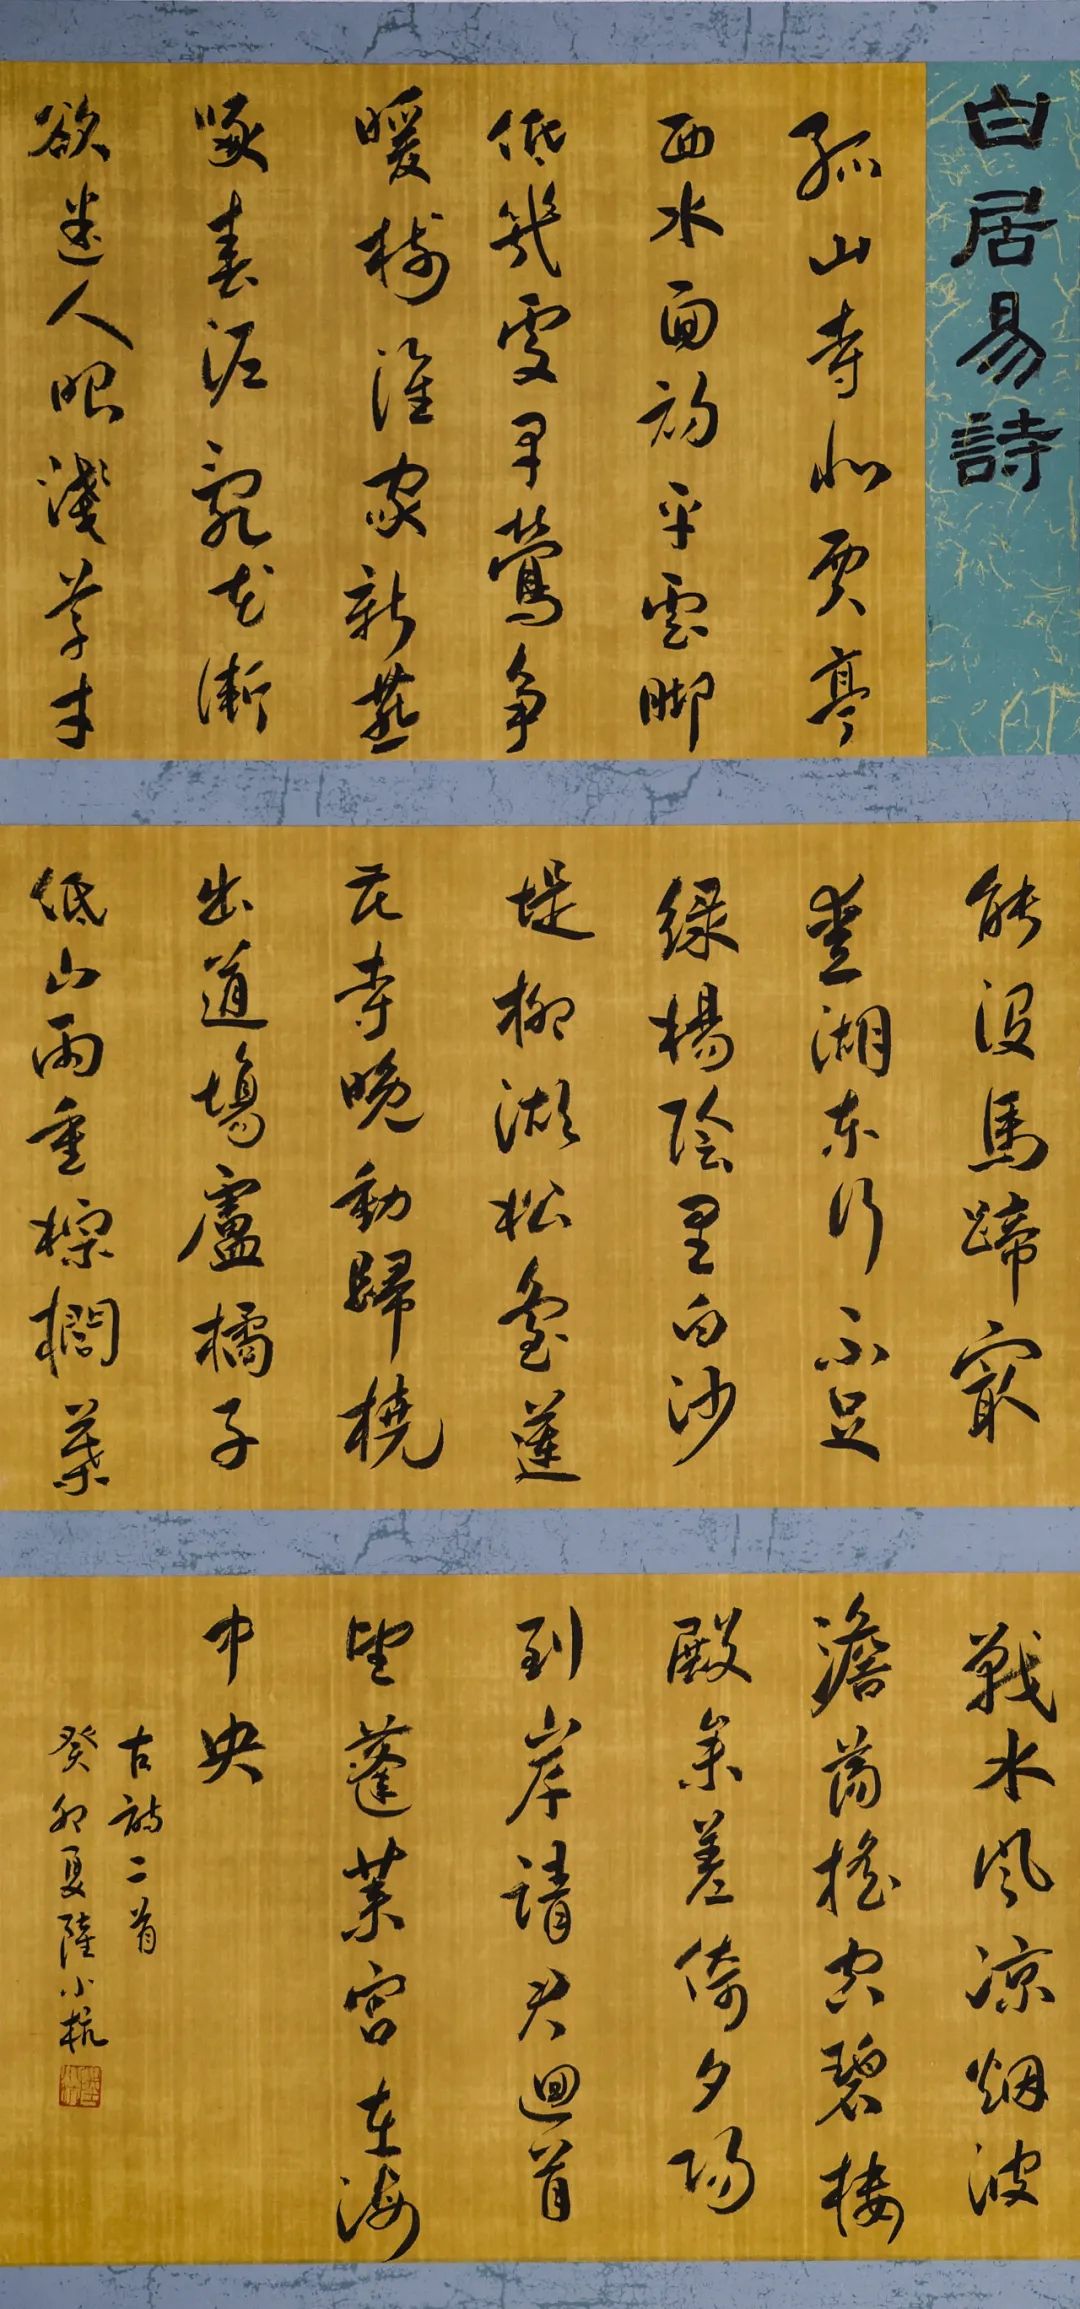 白居易詩
孤山寺北賈亭
西水面初平雲腳
低幾處早鶯争
暖樹誰家新燕
啄春泥亂花漸
欲迷人眼淺草才
能没馬蹄最
愛湖東行不足
緑楊陰里白沙
堤柳湖松島蓮
花寺晚動歸橈
出道場盧橘子
低山雨重棕櫚葉
戰水風涼烟波
澹蕩摇空碧樓
殿参差倚夕陽
到岸請君迴首
望蓬萊宫在海
中央
古詩二首
癸卯夏陸小杭